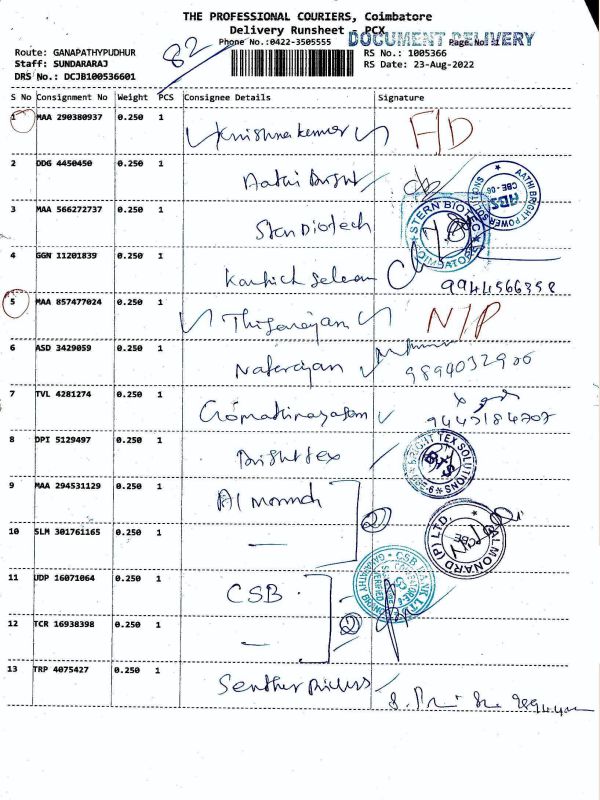 THE PROFESSIONAL COURIERS, Coimbatore
Delivery Runsheet - PCX
Phone No.:0422-3505555 DOCUMENT DELIVERY
82
Route: GANAPATHYPUDHUR RS No.: 1005366
Staff: SUNDARARAJ RS Date: 23-Aug-2022
DRS No.: DCJB100536601
S No Consignment No Weight PCS Consignee Details Signature
1 MAA 290380937 0.250 1 Krishnakumar F/D
2 DDG 4450450 0.250 1 Aathi Bright
AATHI BRIGHT POWER SOLUTIONS CBE - 06 ABS
3 MAA 566272737 0.250 1 Sten Biotech
STERN BIOTEC COIMBATORE
4 GGN 11201839 0.250 1 9944566358
5 MAA 857477024 0.250 1 N/P
6 ASD 3429059 0.250 1 Natarajan 9894032906
7 TVL 4281274 0.250 1 Gomathinayagam 9445184707
8 DPI 5129497 0.250 1 Bright tex
TEX SOLUTIONS
9 MAA 294531129 0.250 1 2
10 SLM 301761165 0.250 1
ALMONARD (P) LTD. CBE
11 UDP 16071064 0.250 1 CSB 2
CSB BANK LTD
12 TCR 16938398 0.250 1
13 TRP 4075427 0.250 1